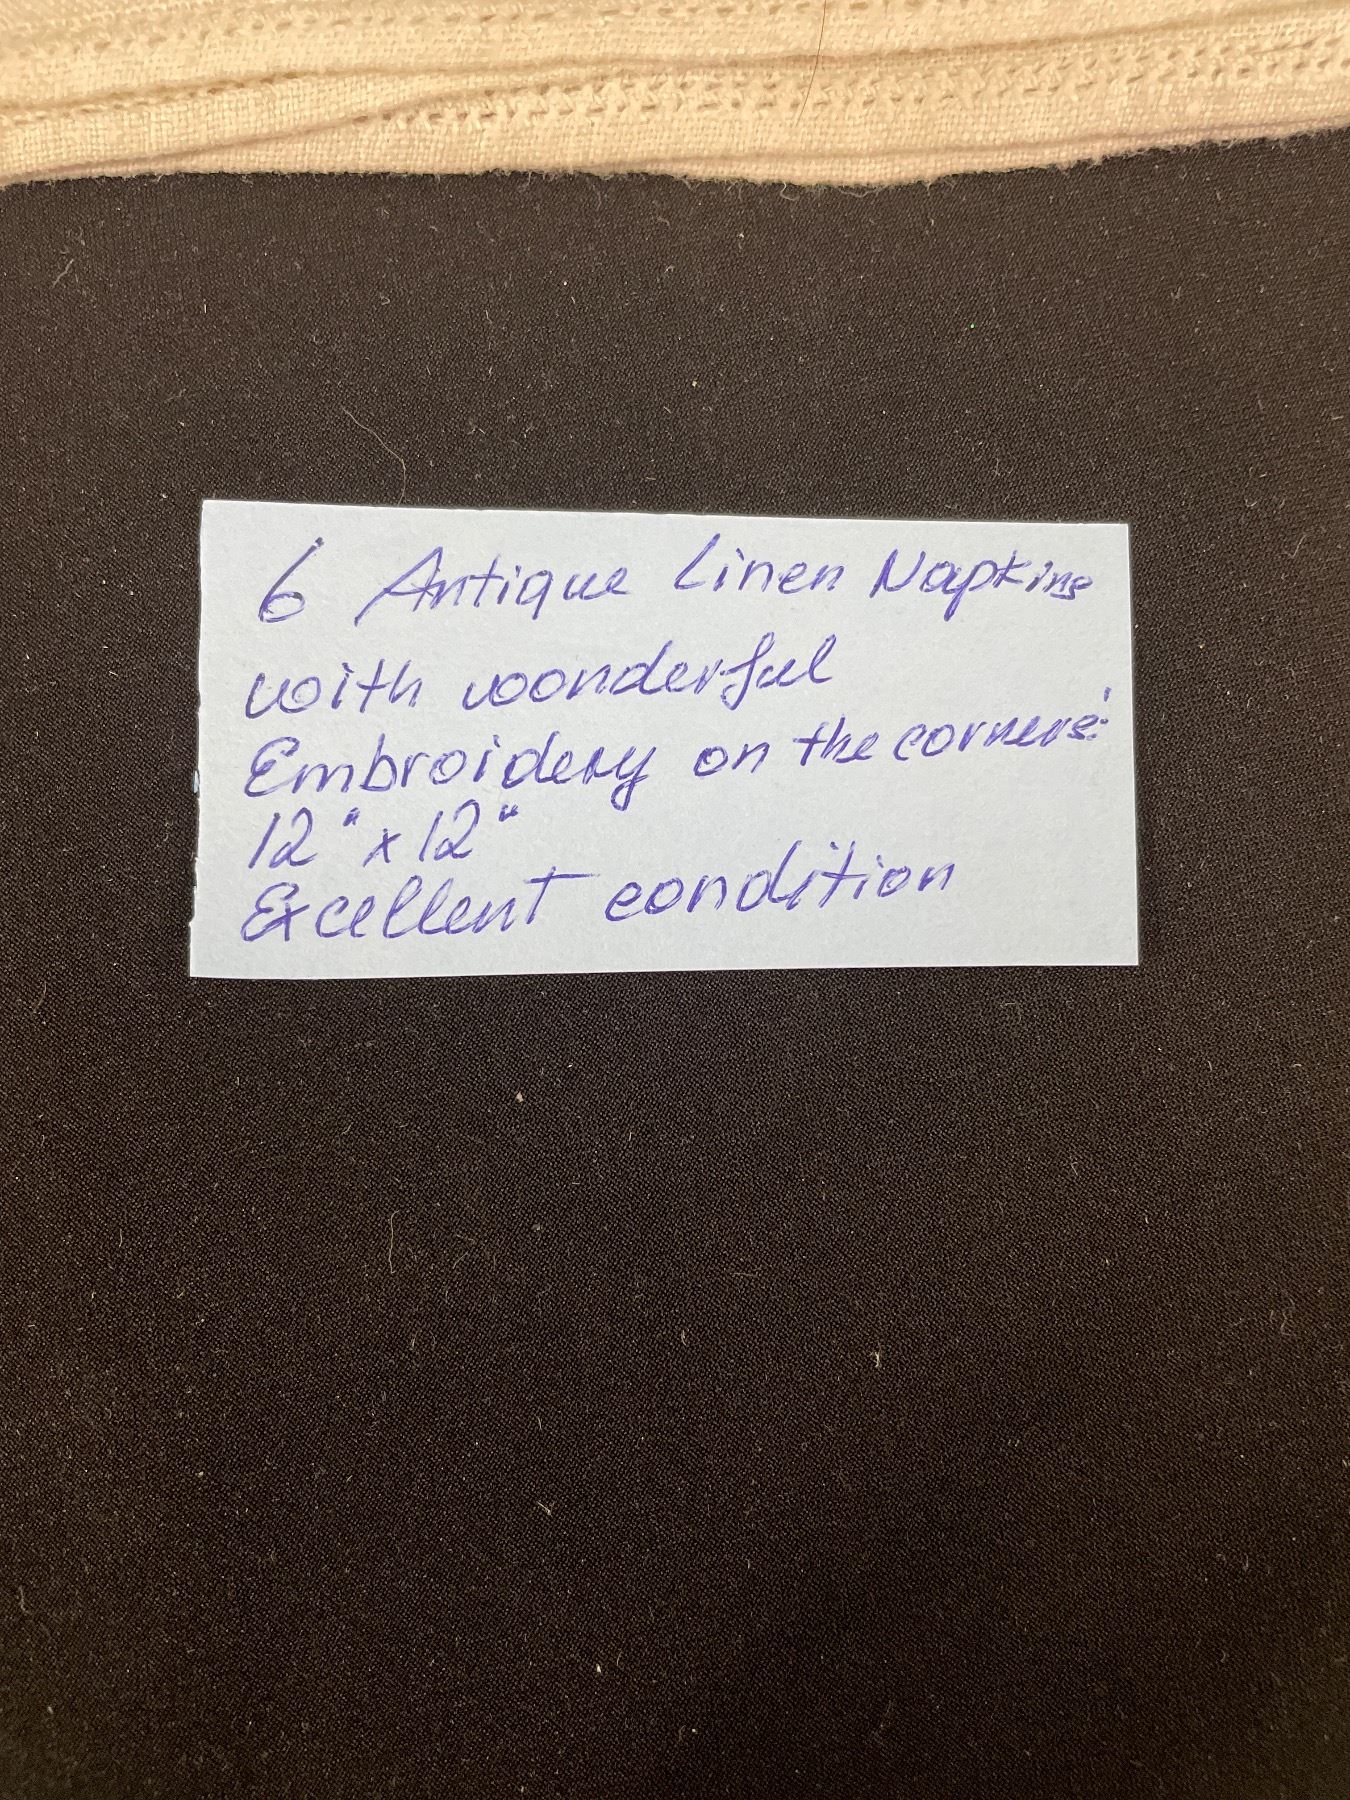 6 Antique Linen Napkins
with wonderful
Embroidery on the corners!
12" x 12"
Excellent condition